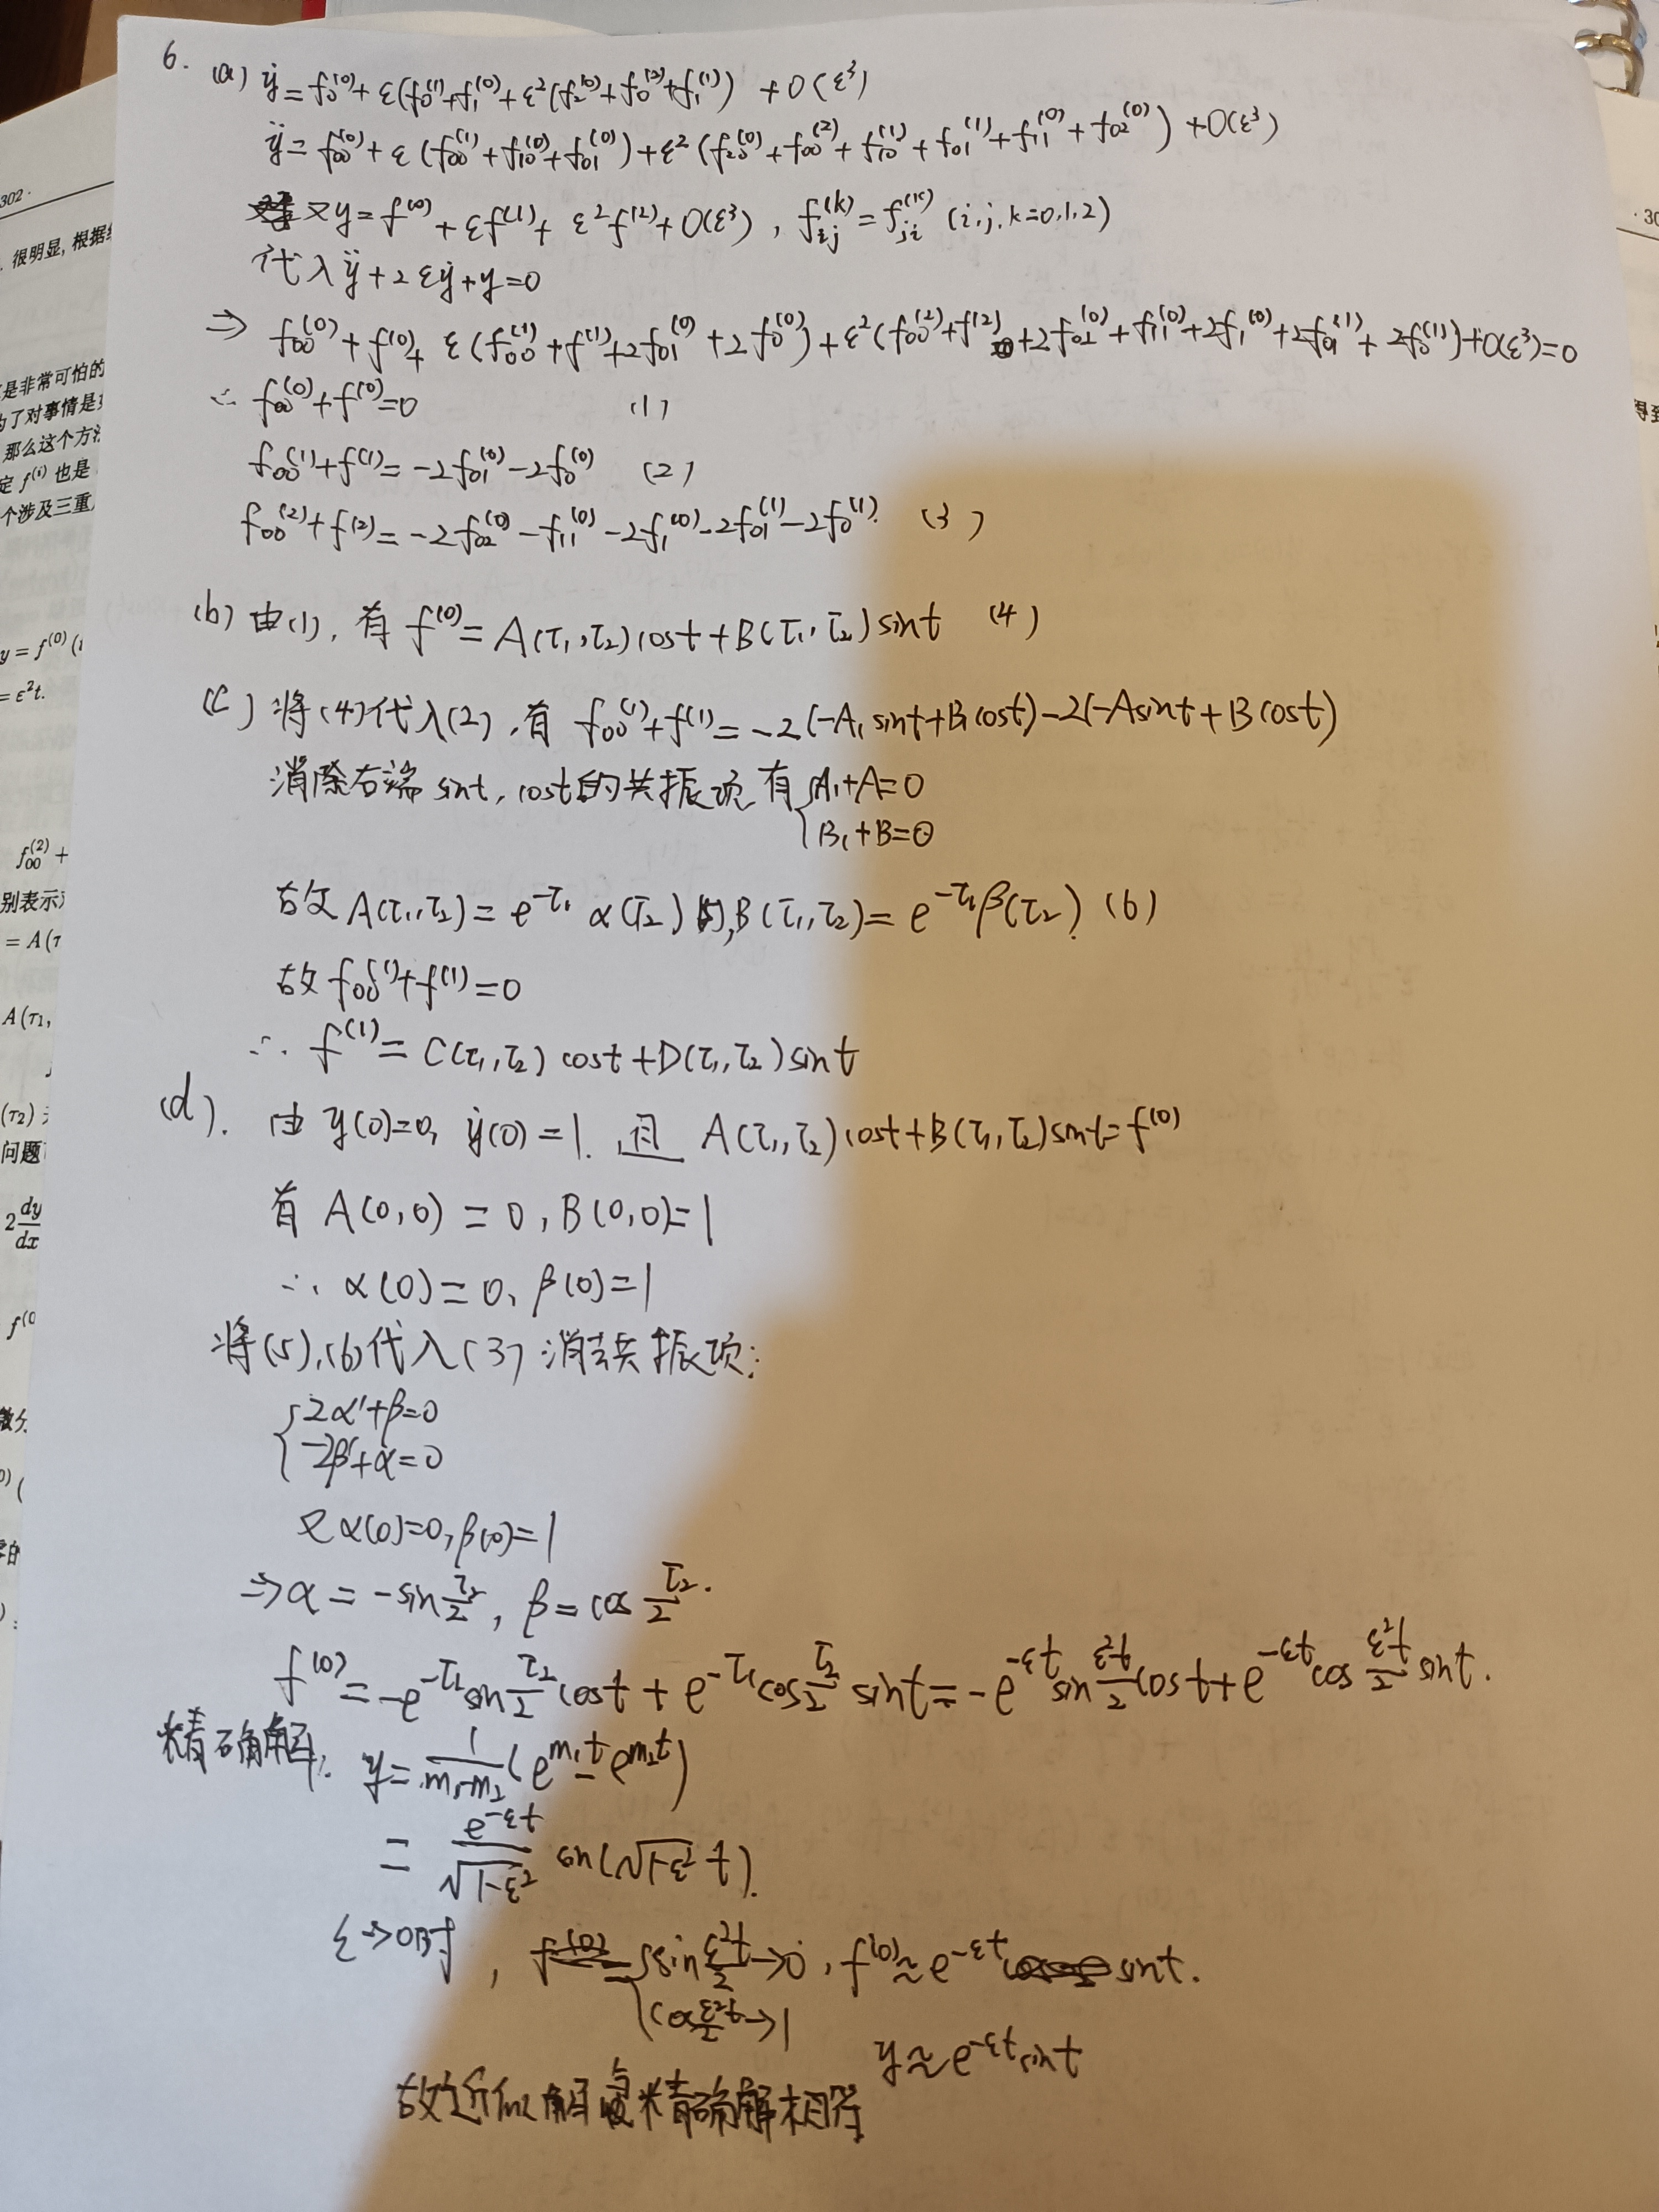 302·
·30
很明显,根据
是非常可怕的
为了对事情是
那么这个方
定 f⁽ⁱ⁾ 也是
个涉及三重
y = f⁽⁰⁾(
= ε²t.
f₀₀⁽²⁾ +
别表示
= A(τ
A(τ₁,
(τ₂)
问题
2 dy/dx
得到
6. (a) ẏ = f₀⁽⁰⁾ + ε(f₀⁽¹⁾+f₁⁽⁰⁾ + ε²(f₂⁽⁰⁾+f₀⁽²⁾+f₁⁽¹⁾) + O(ε³)
ÿ = f₀₀⁽⁰⁾ + ε(f₀₀⁽¹⁾+f₁₀⁽⁰⁾+f₀₁⁽⁰⁾) + ε²(f₂₀⁽⁰⁾+f₀₀⁽²⁾+f₁₀⁽¹⁾+f₀₁⁽¹⁾+f₁₁⁽⁰⁾+f₀₂⁽⁰⁾) + O(ε³)
又y = f⁽⁰⁾ + εf⁽¹⁾ + ε²f⁽²⁾ + O(ε³), f_{ij}^{(k)} = f_{ji}^{(k)} (i,j,k=0,1,2)
代入 ÿ+2εẏ+y=0
⇒ f₀₀⁽⁰⁾ + f⁽⁰⁾ + ε(f₀₀⁽¹⁾+f⁽¹⁾+2f₀₁⁽⁰⁾+2f₀⁽⁰⁾) + ε²(f₀₀⁽²⁾+f⁽²⁾+2f₀₂⁽⁰⁾+f₁₁⁽⁰⁾+2f₁⁽⁰⁾+2f₀₁⁽¹⁾+2f₀⁽¹⁾)+O(ε³)=0
∴ f₀₀⁽⁰⁾+f⁽⁰⁾=0 (1)
f₀₀⁽¹⁾+f⁽¹⁾=-2f₀₁⁽⁰⁾-2f₀⁽⁰⁾ (2)
f₀₀⁽²⁾+f⁽²⁾=-2f₀₂⁽⁰⁾-f₁₁⁽⁰⁾-2f₁⁽⁰⁾-2f₀₁⁽¹⁾-2f₀⁽¹⁾. (3)
(b) 由(1), 有 f⁽⁰⁾ = A(τ₁,τ₂)cost+B(τ₁,τ₂)sint (4)
(c) 将(4)代入(2),有 f₀₀⁽¹⁾+f⁽¹⁾=-2(-A₁sint+B₁cost)-2(-Asint+Bcost)
消除右端 sint, cost的共振项 有 { A₁+A=0
B₁+B=0
故 A(τ₁,τ₂)=e^{-τ₁} α(τ₂), B(τ₁,τ₂)=e^{-τ₁}β(τ₂). (6)
故 f₀₀⁽¹⁾+f⁽¹⁾=0
∴ f⁽¹⁾=C(τ₁,τ₂)cost+D(τ₁,τ₂)sint
(d). 由 y(0)=0, ẏ(0)=1. 且 A(τ₁,τ₂)cost+B(τ₁,τ₂)sint=f⁽⁰⁾
有 A(0,0)=0, B(0,0)=1
∴ α(0)=0, β(0)=1
将(5),(6)代入(3) 消去共振项:
{ 2α'+β=0
-2β'+α=0
又 α(0)=0, β(0)=1
⇒ α = -sin τ₂/2, β = cos τ₂/2.
f⁽⁰⁾ = -e^{-τ₁}sin τ₂/2 cost + e^{-τ₁}cos τ₂/2 sint = -e^{-εt}sin ε²t/2 cost + e^{-εt}cos ε²t/2 sint.
精确解: y = 1/(m₁-m₂) (e^{m₁t}-e^{m₂t})
= e^{-εt}/√(1-ε²) sin(√(1-ε²) t).
ε→0时, { sin ε²t/2→0, f⁽⁰⁾≈e^{-εt} sint.
cos ε²t/2→1
y≈e^{-εt}sint
故近似解与精确解相符